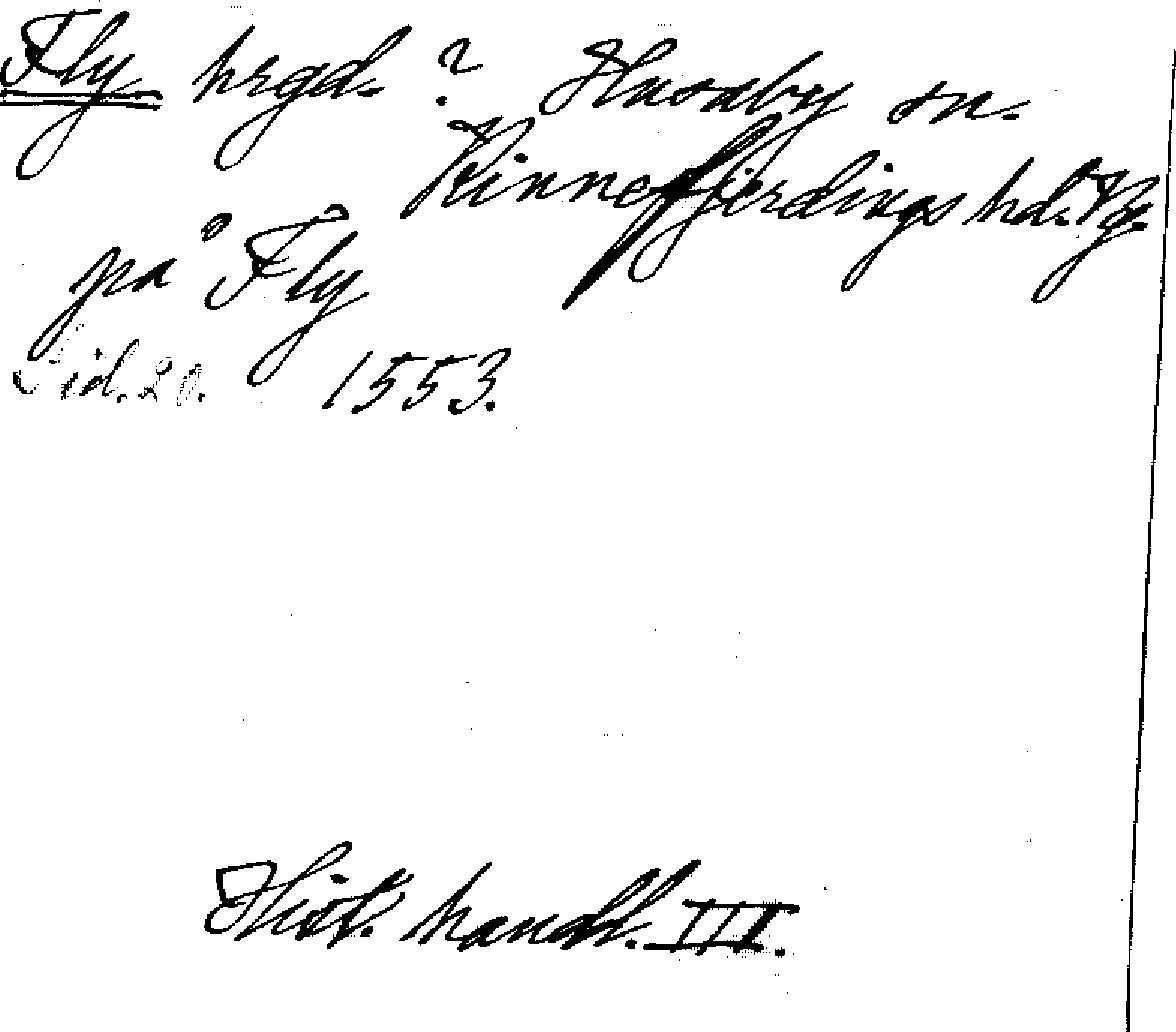 Fly hrgd. ? Husaby sn.
Kinnefjerdings hd. Vg.
på Fly
Sid. 20. 1553.
Hist. handl. III.